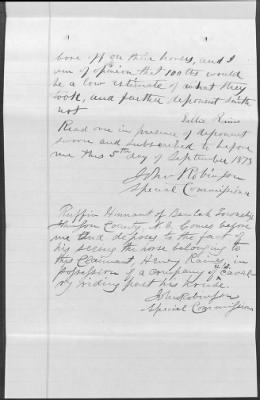 bore off on their horses, and I
am of opinion that 100 lbs would
be a low estimate of what they
took, and further deponent saith
not
Read over in presence of deponent
sworn and subscribed to before
me this 5th day of September 1873
John Robinson
Special Commissioner
Ruffin Hinnant of Beulah Township
County, N.C. Comes before
me and deposes to the fact of
his seeing the horse belonging to
the Claimant, Henry Rains, in
possession of a company of U.S. Caval-
ry riding past his house.
John Robinson
Special Commissioner